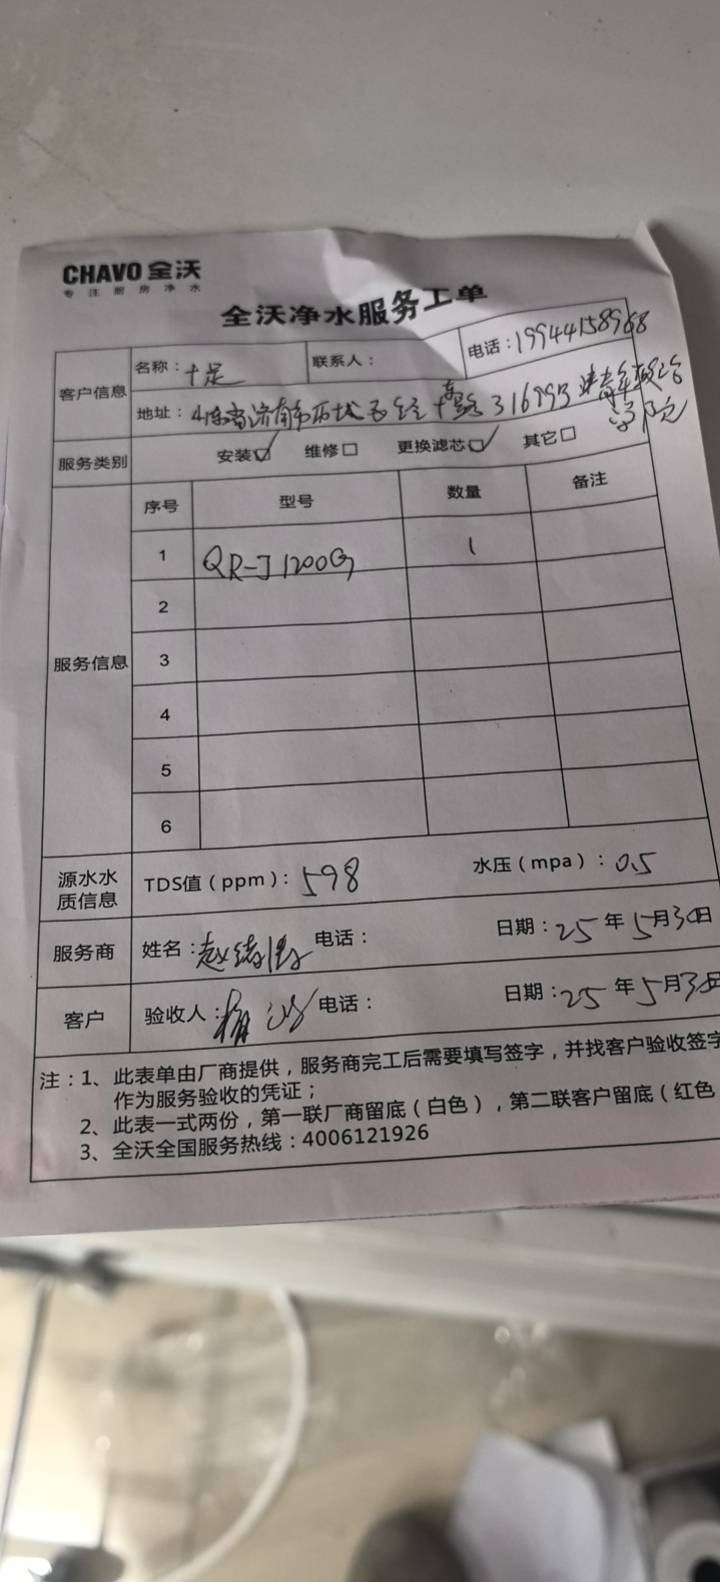 CHAVO 全沃
专注厨房净水
全沃净水服务工单
客户信息
名称：十足 联系人： 电话：19944158968
地址：山东省济南市历城
服务类别 安装☑ 维修□ 更换滤芯☑ 其它□
服务信息
序号 型号 数量 备注
1 QR-J1200G 1
2
3
4
5
6
源水水质信息 TDS值（ppm）：598 水压（mpa）：0.5
服务商 姓名： 电话： 日期：25年5月30日
客户 验收人： 电话： 日期：25年5月30日
注：1、此表单由厂商提供，服务商完工后需要填写签字，并找客户验收签字
作为服务验收的凭证；
2、此表一式两份，第一联厂商留底（白色），第二联客户留底（红色
3、全沃全国服务热线：4006121926